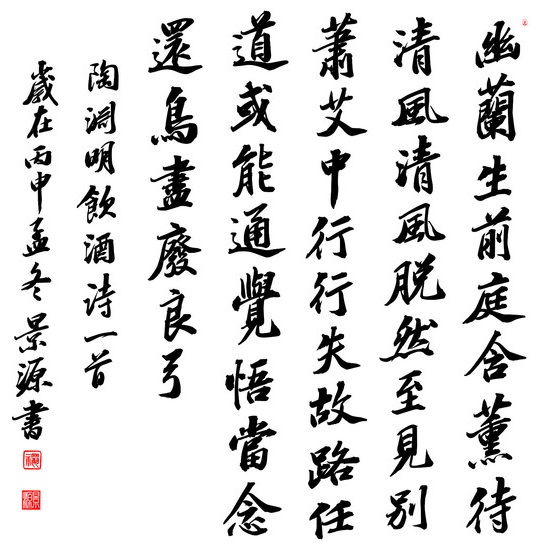 幽蘭生前庭含薰待
清風清風脱然至見別
蕭艾中行行失故路任
道或能通覺悟當念
還鳥盡廢良弓
陶淵明飲酒诗一首
歲在丙申孟冬景源書